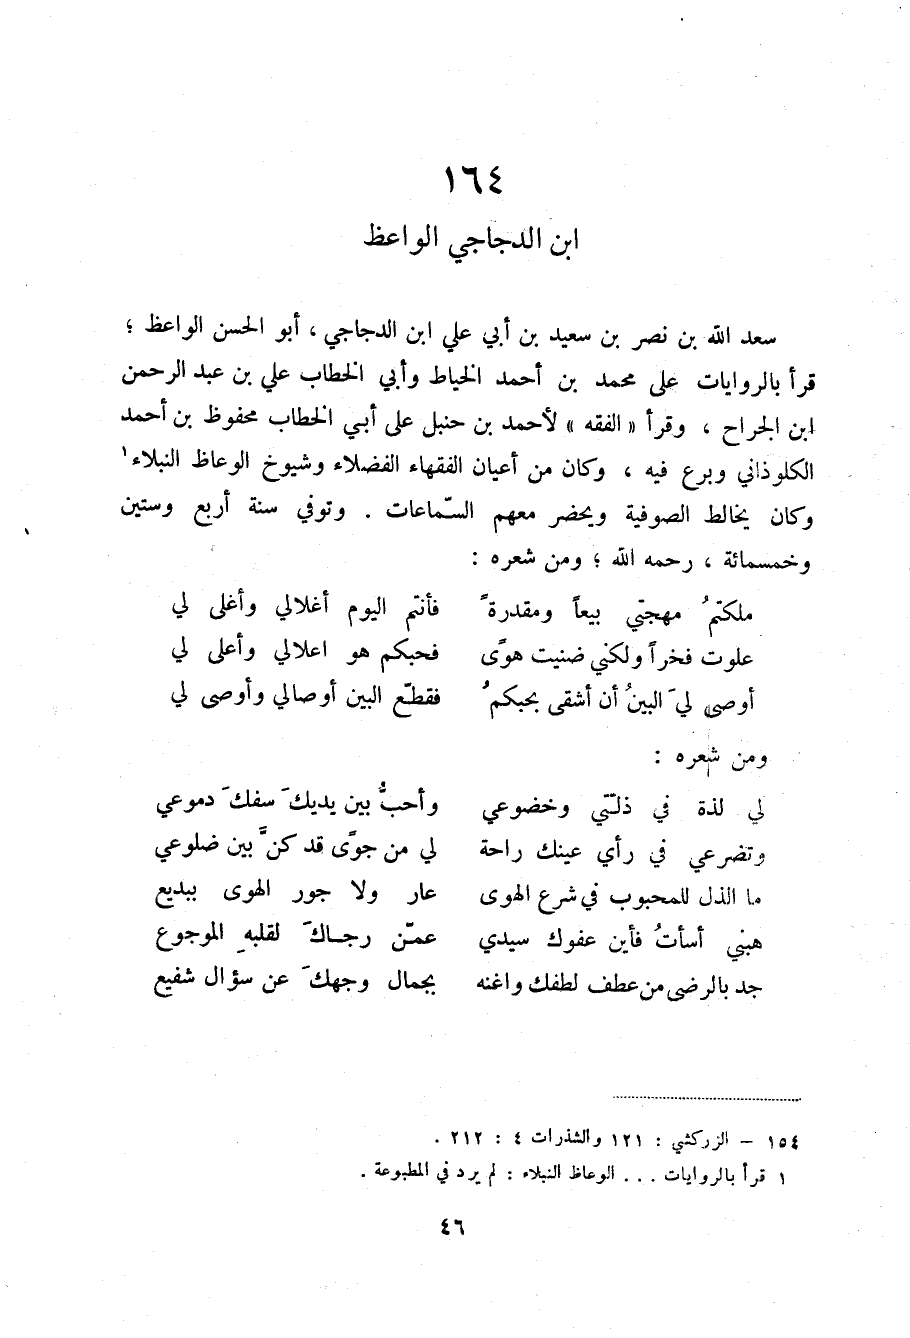 ١٦٤
ابن الدجاجي الواعظ
سعد الله بن نصر بن سعيد بن أبي علي ابن الدجاجي ، أبو الحسن الواعظ ؛
قرأ بالروايات على محمد بن أحمد الخياط وأبي الخطاب علي بن عبد الرحمن
ابن الجراح ، وقرأ « الفقه » لأحمد بن حنبل على أبي الخطاب محفوظ بن أحمد
الكلوذاني وبرع فيه ، وكان من أعيان الفقهاء الفضلاء وشيوخ الوعاظ النبلاء١
وكان يخالط الصوفية ويحضر معهم السّماعات . وتوفي سنة أربع وستين
وخمسمائة ، رحمه الله ؛ ومن شعره :
ملكتمُ مهجتي بيعاً ومقدرةً فأنتم اليوم أغلالي وأغلى لي
علوت فخراً ولكني ضنيت هوًى فحبكم هو اعلالي وأعلى لي
أوصى ليَ البينُ أن أشقى بحبكمُ فقطّع البين أوصالي وأوصى لي
ومن شعره :
لي لذة في ذلّتي وخضوعي وأحبُّ بين يديكَ سفكَ دموعي
وتضرعي في رأي عينك راحة لي من جوًى قد كنَّ بين ضلوعي
ما الذل للمحبوب في شرع الهوى عار ولا جور الهوى ببديع
هبني أسأتُ فأين عفوك سيدي عمّن رجاكَ لقلبهِ الموجوع
جد بالرضى من عطف لطفك واغنه بجمال وجهكَ عن سؤال شفيع
١٥٤ – الزركشي : ١٢١ والشذرات ٤ : ٢١٢ .
١ قرأ بالروايات . . . الوعاظ النبلاء : لم يرد في المطبوعة .
٤٦